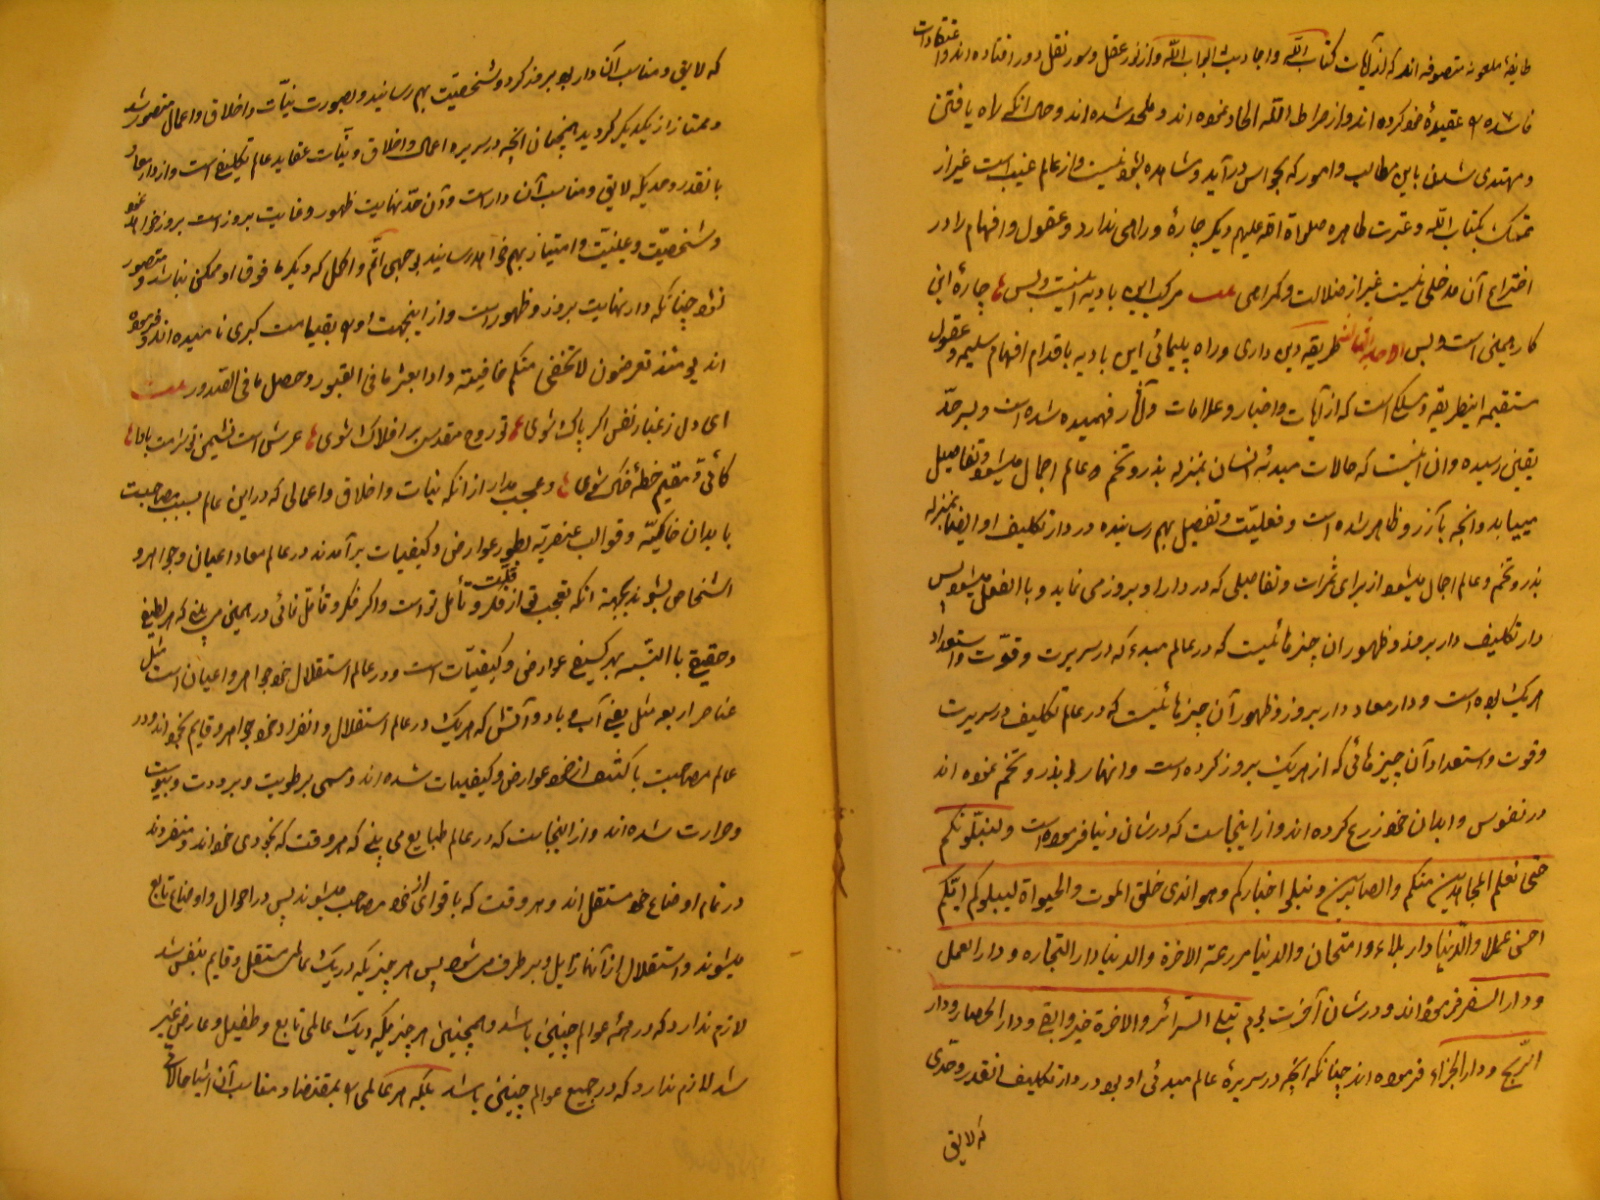 طایفهٔ ملعونه متصوفه اند که از آیات کتاب الله و احادیث ابواب الله و از نور عقل و سور نقل دور افتاده اند و اعتقادات
فاسده عقیدهٔ خود کرده اند و از صراط الله الحاد نموده اند و ملحد شده اند و حال آنکه راه یافتن
و مهتدی شدن باین مطالب و امور که بحواس در آید و مشاهده نیست و از عالم غیب است غیر از
تمسک بکتاب الله و عترت طاهره صلواة الله علیهم دیگر چارهٔ و راهی ندارد و عقول و افهام را در
اختراع آن مدخلی نیست غیر از ضلالت و گمراهی بیت مرکب این بادیه اینست و بس ها چارهٔ این
کار همین است و بس طریقه دین داری و راه پیمائی این بادیه باقدام افهام سلیمه و عقول
مستقیمه اینطریقه و مسلکی است که از آیات و اخبار و علامات و آثار فهمیده شده است و بسر حدّ
یقین رسیده و آن اینست که حالات مبدئه انسان بمنزله بذر و تخم و عالم اجمال میشود و تفاصیل
مییابد و آنچه بآن رو ظاهر شده است و فعلیّت و تفصیل بهم رسانیده در دار تکلیف او ایضا بمنزله
بذر و تخم و عالم اجمال میشود از برای ثمرات و تفاصیلی که در دار او بروز می نماید و بالفعل میشود پس
دار تکلیف دار بروز و ظهور آن چیزهائیست که در عالم مبدء که در سریرت و قوّت و استعداد
هریک بوده است و دار معاد دار بروز و ظهور آن چیزهائیست که در عالم تکلیف در سریرت
و قوت و استعداد آن چیزهائی که از هریک بروز کرده است و آنها را بذر و تخم نموده اند
در نفوس و ابدان خود زرع کرده اند و از اینجاست که در شان دنیا فرموده است و لنبلونکم
حتی نعلم المجاهدین منکم و الصابرین و نبلو اخبارکم و هو الذی خلق الموت و الحیواة لیبلوکم ایکم
احسن عملا و الدنیا دار بلاء و امتحان و الدنیا مزرعة الاخرة و الدنیا دار التجاره و دار العمل
و دار السفر فرموده اند و در شان آخرت یوم تبلی السرائر و الاخرة خیر و ابقی و دار الحصاد و دار
الربح و دار الجزاء فرموده اند چنانکه آنچه در سریرهٔ عالم مبدئی او بود در دار تکلیف آنقدر و حدی
که لایق
که لایق و مناسب آن دار بود بروز کرد و تشخصیّت بهم رسانید و بصورت نیّات و اخلاق و اعمال متصور شد
و ممتاز از یکدیگر گردید همچنان آنچه در سریره اعمال و اخلاق و نیّات عقاید عالم تکلیفی است و از دار معاد
بآنقدر و حدیکه لایق و مناسب آن دار است و آن حدّ نهایت ظهور و غایت بروز است بروز خواهد نمود
و تشخصیّت و عینیّت و امتیاز بهم خواهد رسانید بوجهی اتّم و اکمل که دیگر ما فوق او ممکن نباشد و متصور
نشود چنانکه دار نهایت بروز و ظهور است و از اینجهت او بقیامت کبری نامیده اند و فرموده
اند یومئذ تعرضون لا تخفی منکم خافیة و اذا بعثر ما فی القبور و حصل ما فی الصدور بیت
ای دل ز غبار نفس اگر پاک شوی ها تو روح مقدس بر افلاک شوی ها عرش است نشیمن تو شرمت بادا ها
کائی و مقیم خطهٔ خاک شوی ها و عجب مدار از آنکه نیات و اخلاق و اعمالی که در این عالم بسبب مصاحبت
با ابدان خاکیّه و قوالب عنصریّه بطور عوارض و کیفیات برآمدند در عالم معاد اعیان و جواهر و
اشخاص بشوند بجهة آنکه تعجب تو از قلّت فکر و تأمل تو است و اگر فکر و تأمّل نمائی در همین می بینی که هر لطیفی
و حقیقی بالنسبه بهر کسیفی عوارض و کیفیّات است و در عالم استقلال خود جواهر و اعیان است مثل
عناصر اربعه مثل یعنی آب و باد و آتش که هریک در عالم استقلال و انفراد خود جواهر و قایم بخود اند و در
عالم مصاحبت با کثیف از خود عوارض و کیفیات شده اند و مسمی برطوبت و برودت و یبوست
و حرارت شده اند و از اینجاست که در عالم طبایع می بینی که هر وقت که بخودی خود اند و منفردند
در تمام اوضاع خود مستقل اند و هر وقت که با قوای از خود مصاحب میشوند پس در احوال و اوضاع تابع
میشوند و استقلال از آنها زایل و بر طرف می شود پس هر چیزیکه در یک عالم مستقل و قایم بنفس شد
لازم ندارد که در همهٔ عوالم چنین باشد و همچنین هر چیزیکه در یک عالمی تابع و طفیل و عارض غیر
شد لازم ندارد که در جمیع عوالم چنین باشد بلکه هر عالمی بمقتضا و مناسب آن اشیا حالاتی